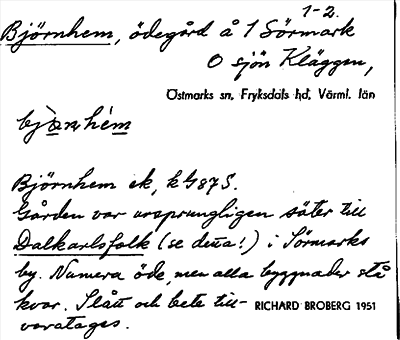 1-2.
Björnhem, ödegård å 1 Sörmark
O sjön Kläggen,
Östmarks sn, Fryksdals hd, Värml. län
bjö̀ᴂnhém
Björnhem ek, kG87S.
Gården var ursprungligen säter till
Dalkarlsfolk (se detta!) i Sörmarks
by. Numera öde, men alla byggnader stå
kvar. Slått och bete till-
RICHARD BROBERG 1951
varatages.